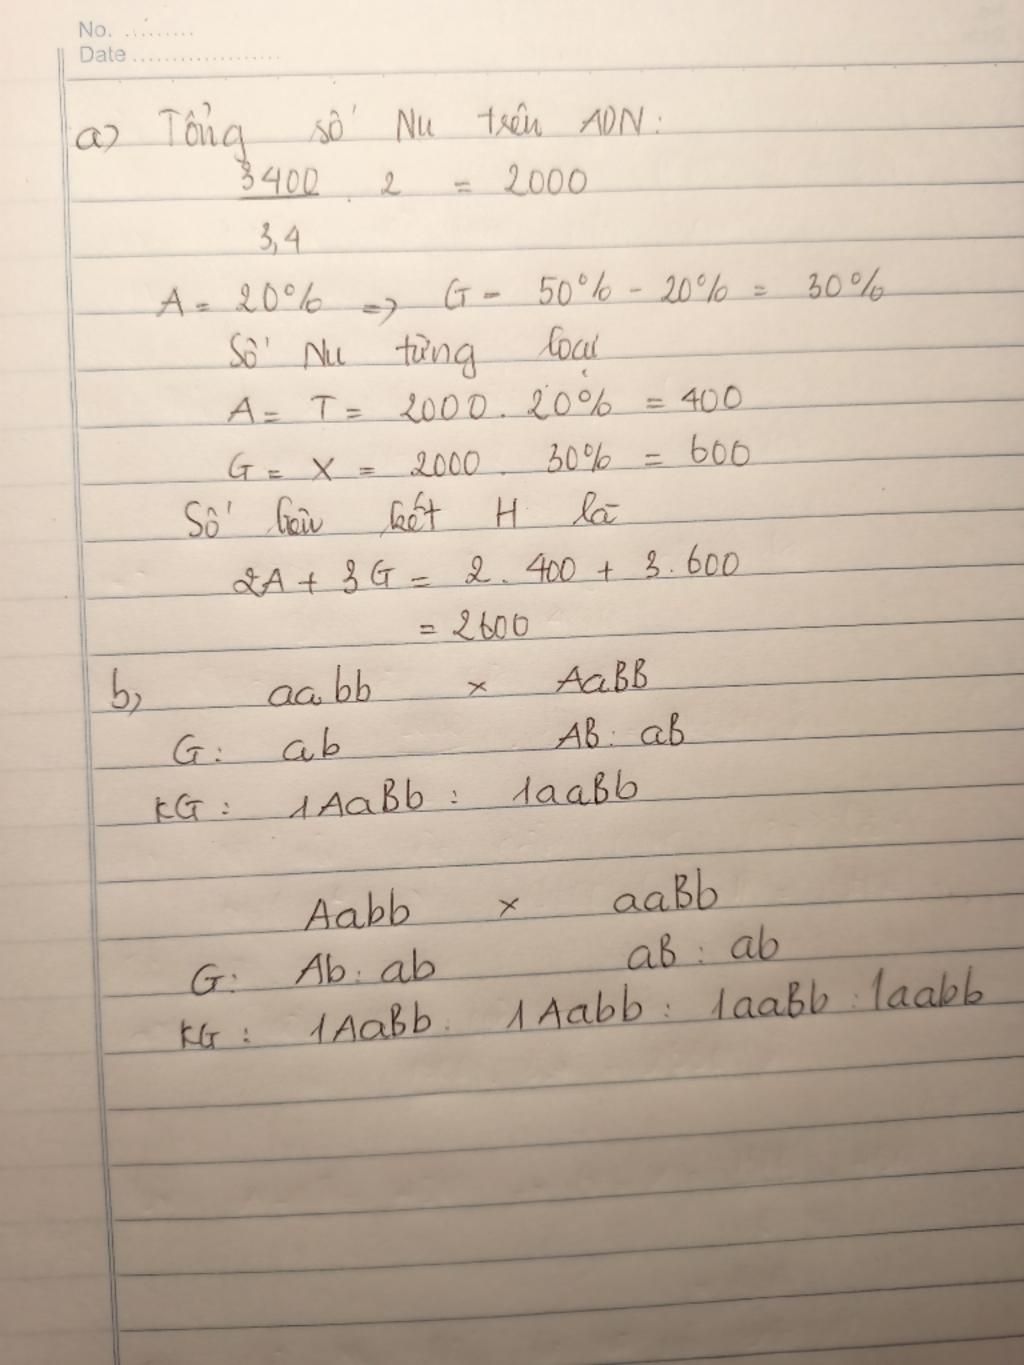 No. .........
Date ...................
a) Tổng số Nu trên ADN:
3400 . 2 = 2000
3,4
A = 20% => G = 50% - 20% = 30%
Số Nu từng loại
A = T = 2000 . 20% = 400
G = X = 2000 . 30% = 600
Số liên kết H là
2A + 3G = 2 . 400 + 3 . 600
= 2600
b, aabb × AaBB
G: ab AB : aB
KG : 1AaBb : 1aaBb
Aabb × aaBb
G: Ab : ab aB : ab
KG : 1AaBb : 1Aabb : 1aaBb : 1aabb